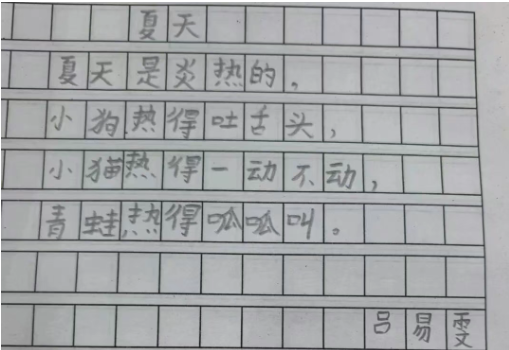 夏天
夏天是炎热的,
小狗热得吐舌头,
小猫热得一动不动,
青蛙热得呱呱叫。
吕易雯